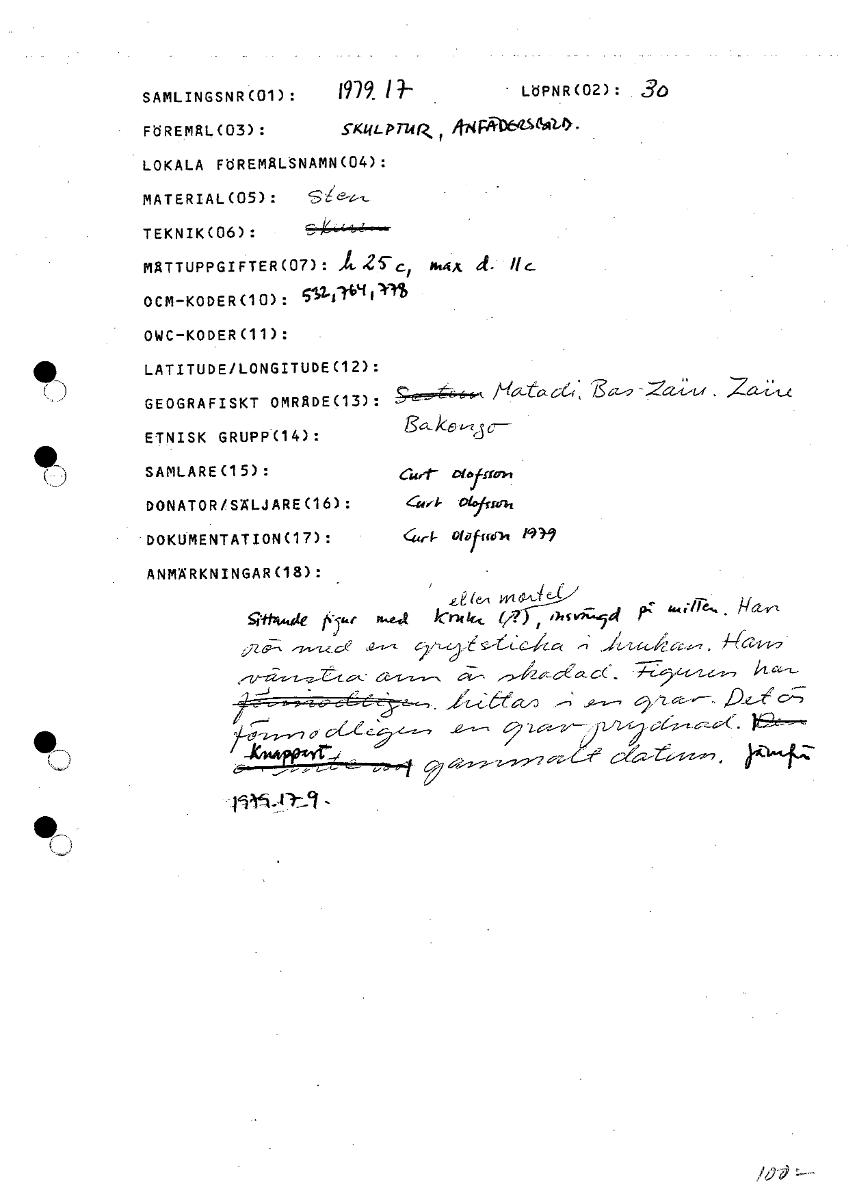 SAMLINGSNR(01): 1979.17 LÖPNR(02): 30
FÖREMÅL(03): SKULPTUR, ANFÄDERSBILD.
LOKALA FÖREMÅLSNAMN(04):
MATERIAL(05): Sten
TEKNIK(06):
MÅTTUPPGIFTER(07): h 25 c, max d. 11 c
OCM-KODER(10): 532, 764, 778
OWC-KODER(11):
LATITUDE/LONGITUDE(12):
GEOGRAFISKT OMRÅDE(13): Matadi. Bas-Zaïre. Zaïre
ETNISK GRUPP(14): Bakongo
SAMLARE(15): Curt Olofsson
DONATOR/SÄLJARE(16): Curt Olofsson
DOKUMENTATION(17): Curt Olofsson 1979
ANMÄRKNINGAR(18):
eller mortel
Sittande figur med kruka (?), insvängd på mitten. Han
rör med en grytsticka i krukan. Hans
vänstra arm är skadad. Figuren har
förmodligen hittas i en grav. Det är
förmodligen en gravprydnad.
Knappert gammalt datum. Jämför
1979.17.9.
100:-